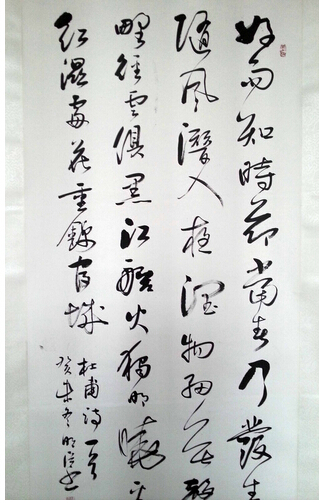 好雨知時節當春乃發生
隨風潛入夜潤物細無聲
野徑雲俱黑江船火獨明曉看
紅濕處花重錦官城
杜甫詩一首
癸未冬明